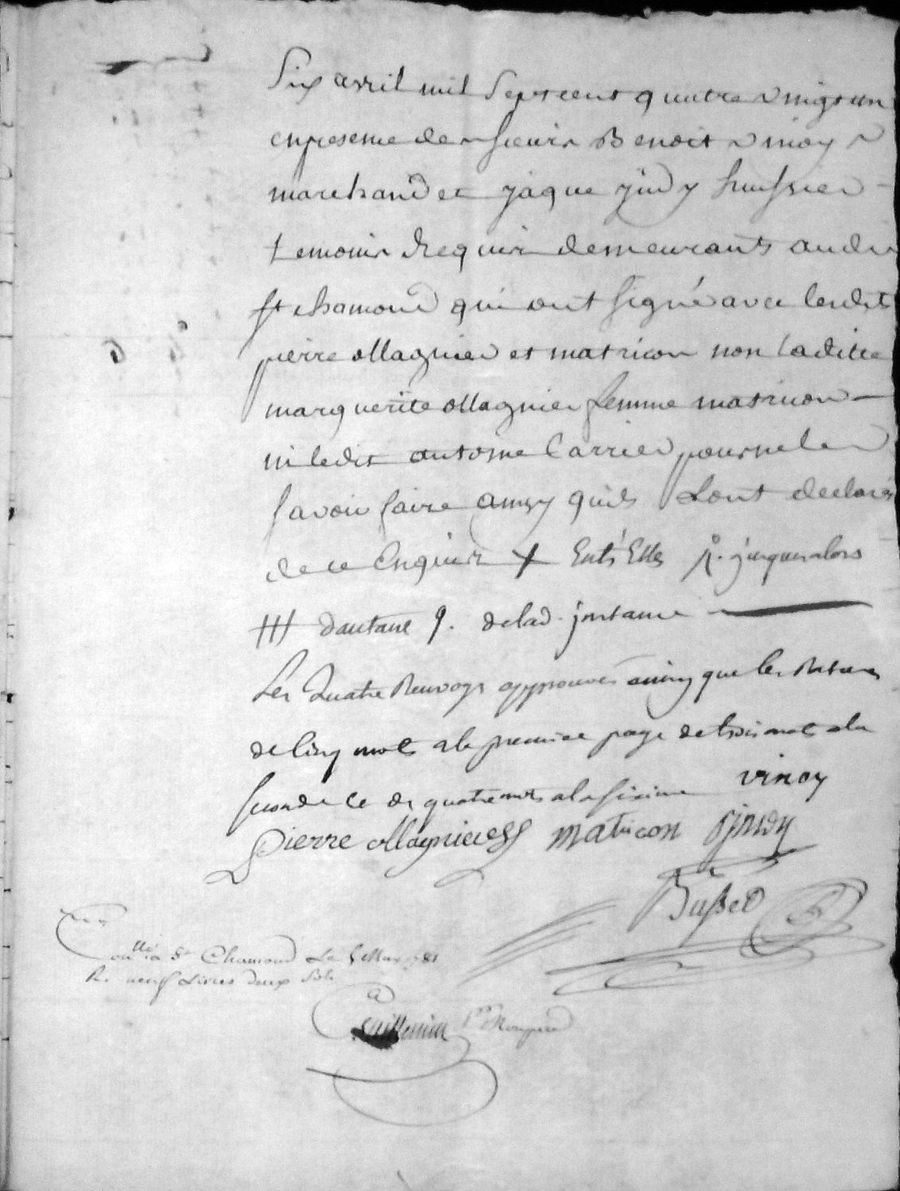 Six avril mil Sept cent quatre vingt un
en presence de sieurs Benoit vinoy
marchand et jaque jindy huissier
temoins Requis demeurants audit
St chamond qui ont signé avec lesdits
pierre ollagnier et matricon non ladite
marguerite ollagnier femme matricon
ni ledit antoine Carrier pour ne le
savoir faire ainsy quils Lont declaré
de ce Enquis + Entr'Elles jusques alors
### dautant 9. de lad. instance
Les Quatre Renvoys approuvés ainsy que les Ratures
de cinq mots a la premiere page de trois mots a la
seconde et de quatre mots a la sixieme vinoy
pierre ollagnier matricon jindy
Controllé a St Chamond Le
R. neuf Livres deux Sols